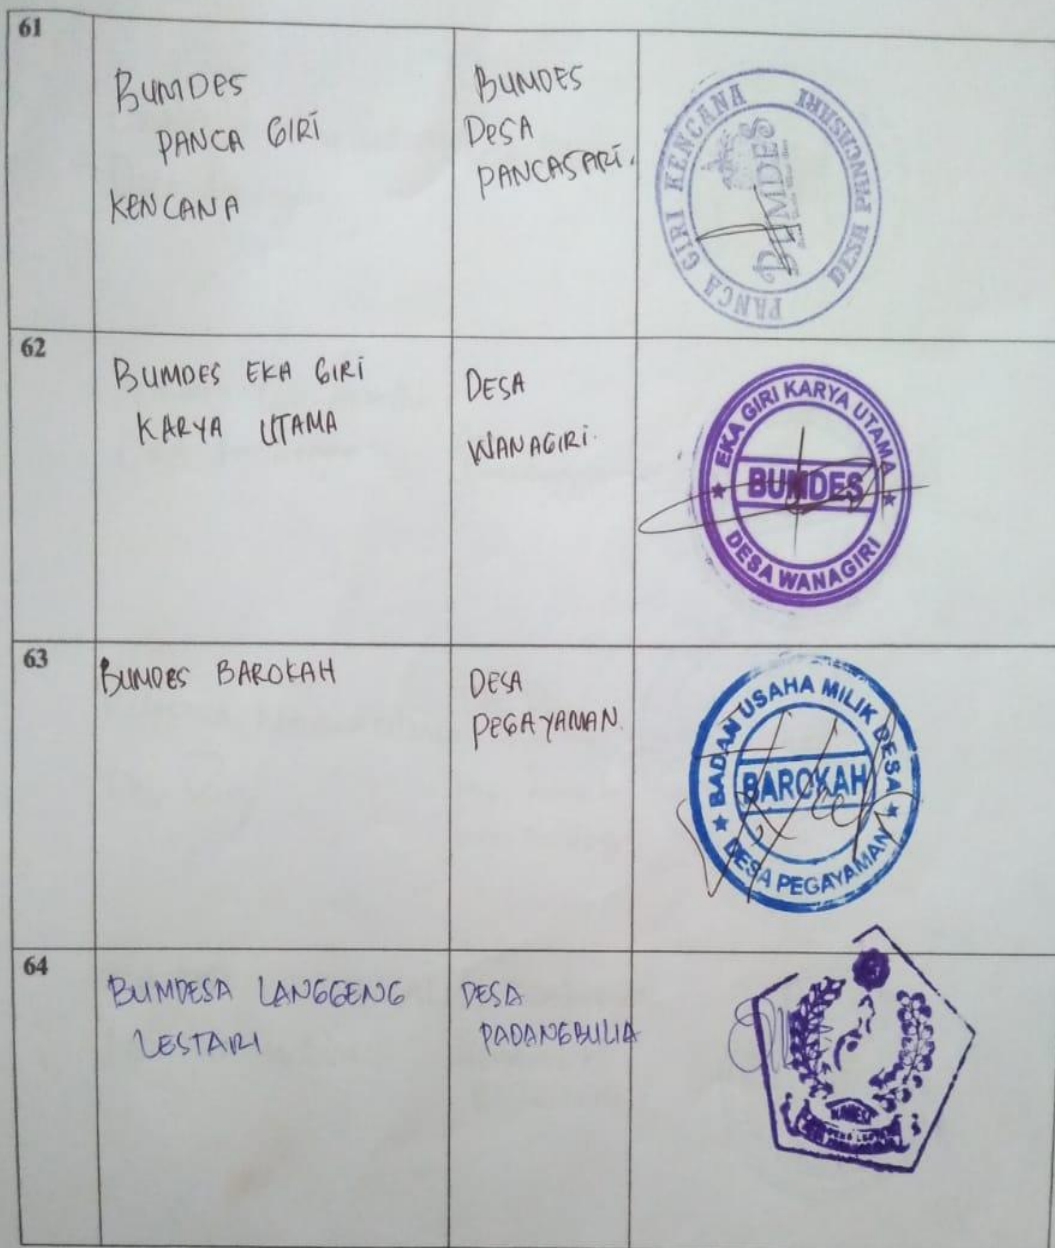 61
BUMDES
PANCA GIRI
KENCANA
BUMDES
DESA
PANCASARI.
PANCA GIRI KENCANA
BUMDES
DESA PANCASARI
62
BUMDES EKA GIRI
KARYA UTAMA
DESA
WANAGIRI.
EKA GIRI KARYA UTAMA
BUMDES
DESA WANAGIRI
63
BUMDES BAROKAH
DESA
PEGAYAMAN.
BADAN USAHA MILIK DESA
BAROKAH
DESA PEGAYAMAN
64
BUMDESA LANGGENG
LESTARI
DESA
PADANGBULIA